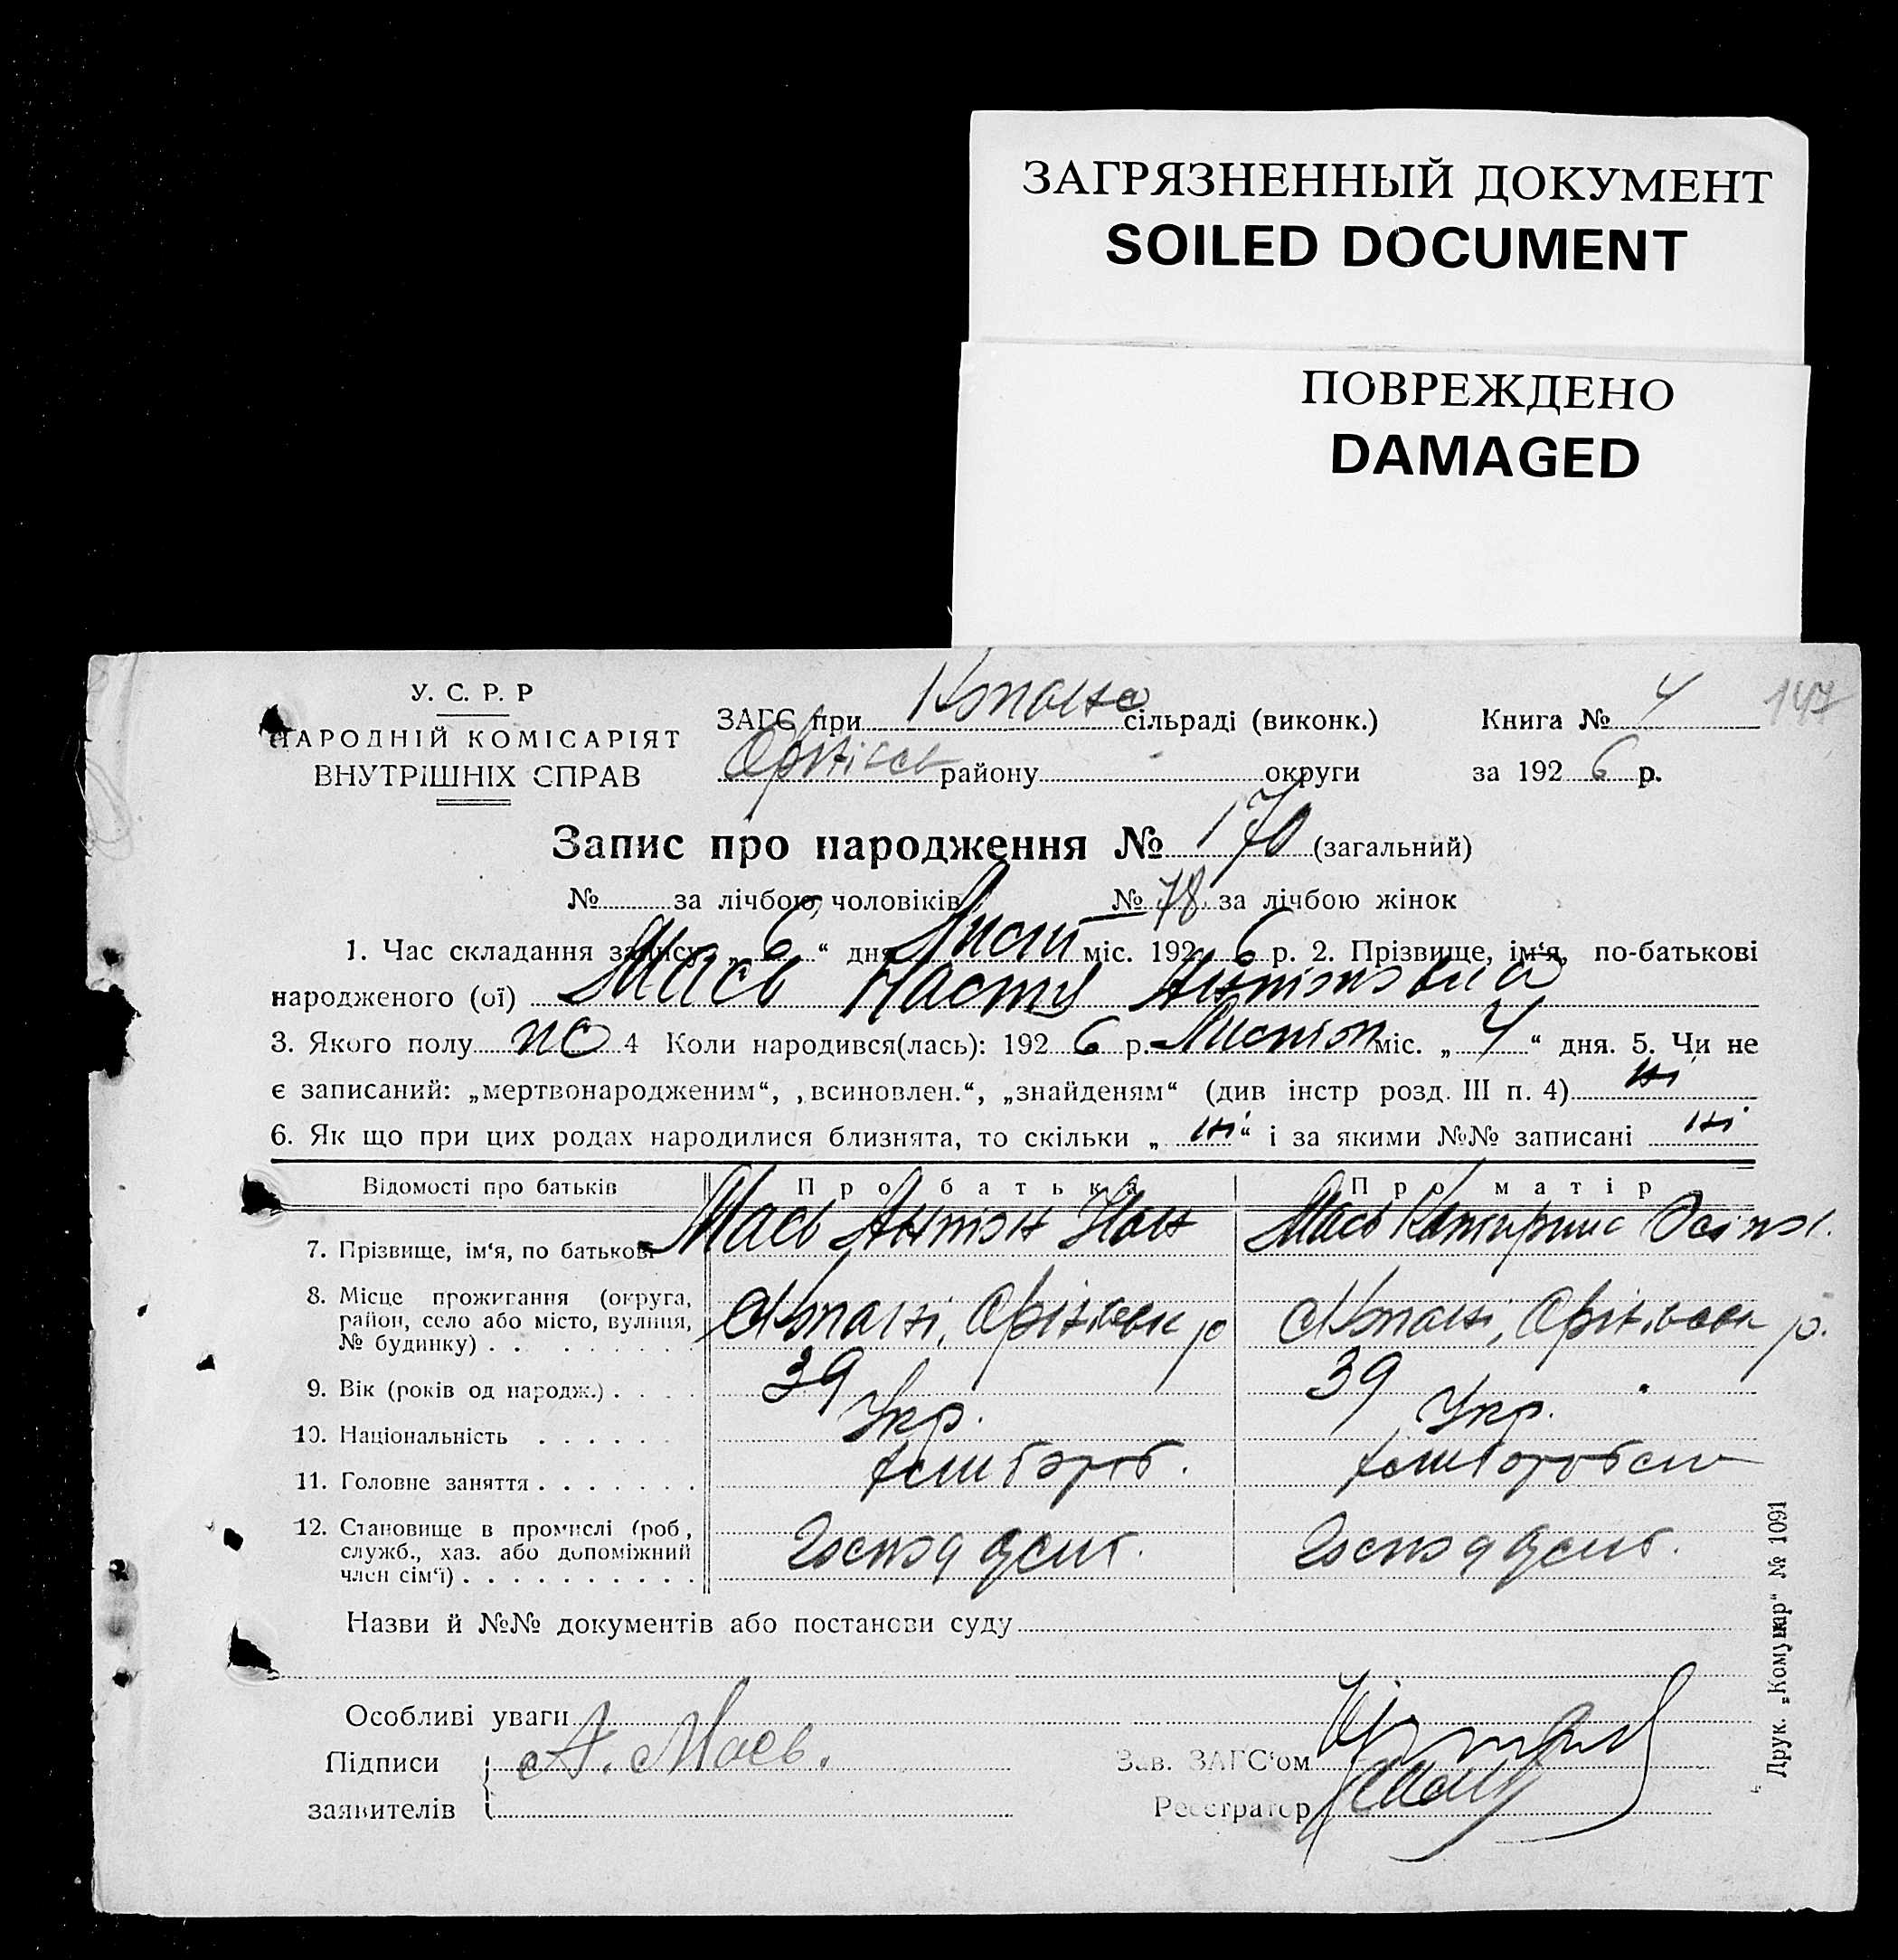 ЗАГРЯЗНЕННЫЙ ДОКУМЕНТ
SOILED DOCUMENT
ПОВРЕЖДЕНО
DAMAGED
У. С. Р. Р
НАРОДНІЙ КОМІСАРІЯТ
ВНУТРІШНІХ СПРАВ
ЗАГС при сільраді (виконк.)
району округи
Книга № 4
147
за 1926 р.
Запис про народження № 170 (загальний)
№ за лічбою чоловіків № 78 за лічбою жінок
1. Час складання запису „6“ дня Лист міс. 1926 р. 2. Прізвище, ім‘я, по-батькові
народженого (ої) Мась Настя Антоновна
3. Якого полу 4 Коли народився(лась): 1926 р. міс. „4“ дня. 5. Чи не
є записаний: „мертвонародженим“, „всиновлен.“, „знайденям“ (див інстр розд. III п. 4) ні
6. Як що при цих родах народилися близнята, то скільки „ні“ і за якими №№ записані ні
Відомості про батьків Про батька Про матір
7. Прізвище, ім‘я, по батькові Мась Антон Мась
8. Місце проживання (округа,
район, село або місто, вулиця,
№ будинку)
9. Вік (років од народж.) 39 39
10. Національність Укр. Укр.
11. Головне заняття
12. Становище в промислі (роб,
служб., хаз. або допоміжний
член сім‘ї)
Назви й №№ документів або постанови суду
Особливі уваги
Підписи А. Мась. Зав. ЗАГС‘ом
заявителів Реєстратор
Друк. „Комунар“ № 1091